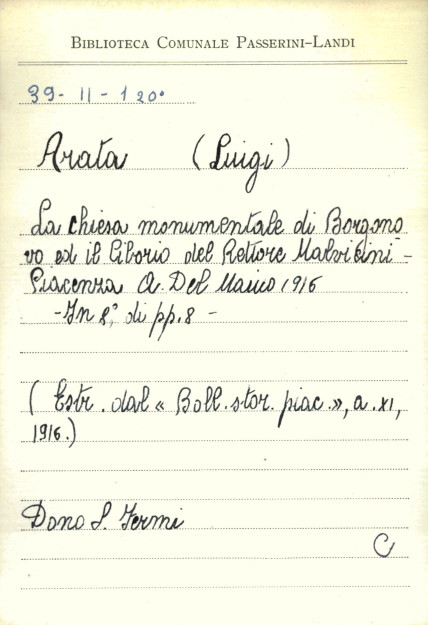 BIBLIOTECA COMUNALE PASSERINI-LANDI
39-II-120°
Arata (Luigi)
La chiesa monumentale di Borgono
vo ed il Ciborio del Rettore Malvicini -
Piacenza A. Del Maino 1916
- In 8° di pp. 8 -
( Estr. dal « Boll. stor. piac. », a. XI,
1916.)
Dono S. Fermi
C